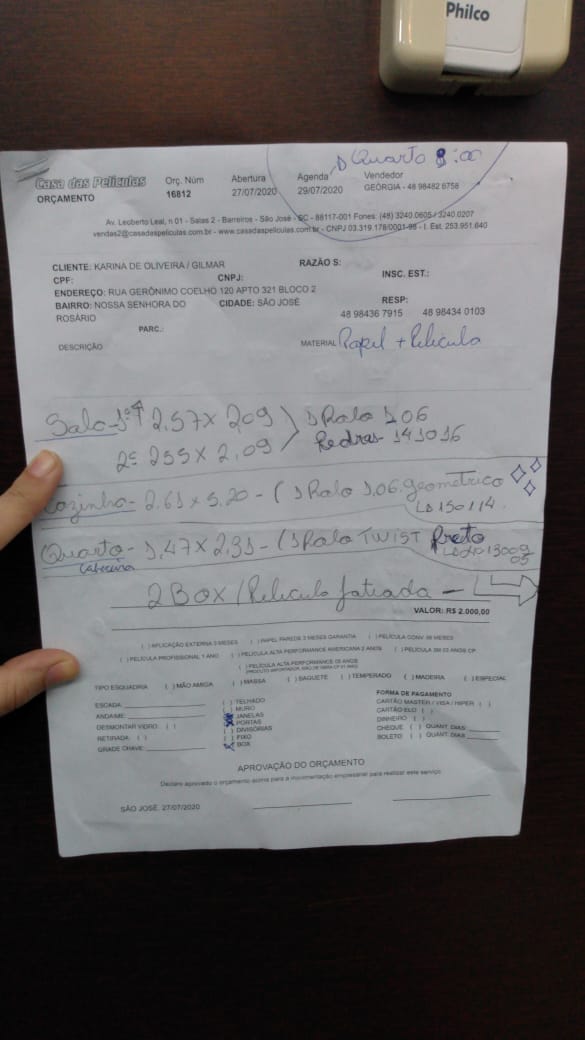 Philco
Quarto 8:00
Casa das Películas Orç. Núm Abertura Agenda Vendedor
ORÇAMENTO 16812 27/07/2020 29/07/2020 GEÓRGIA - 48 98482 6758
Av. Leoberto Leal, n 01 - Salas 2 - Barreiros - São José - SC - 88117-001 Fones: (48) 3240.0605 / 3240.0207
vendas2@casadaspeliculas.com.br - www.casadaspeliculas.com.br - CNPJ 03.319.178/0001-98 - I. Est. 253.951.640
CLIENTE: KARINA DE OLIVEIRA / GILMAR RAZÃO S:
CPF: CNPJ: INSC. EST.:
ENDEREÇO: RUA GERÔNIMO COELHO 120 APTO 321 BLOCO 2
BAIRRO: NOSSA SENHORA DO ROSÁRIO CIDADE: SÃO JOSÉ RESP:
48 98436 7915 48 98434 0103
PARC.:
DESCRIÇÃO MATERIAL Papel + Pelicula
Sala - 1º 2,57 x 209 1 Rolo 1,06
2º 255 x 2,09 Pedras 141016
Cozinha - 2,61 x 5,20 - (1 Rolo 1,06 geometrico
LD 150114
Quarto - 1,47 x 2,31 - (1 Rolo TWIST Preto
Cabeceira
2 BOX / Pelicula fatiada -
VALOR: R$ 2.000,00
( ) APLICAÇÃO EXTERNA 3 MESES ( ) PAPEL PAREDE 3 MESES GARANTIA ( ) PELÍCULA CONV. 06 MESES
( ) PELÍCULA PROFISSIONAL 1 ANO ( ) PELÍCULA ALTA PERFORMANCE AMERICANA 2 ANOS ( ) PELÍCULA 3M 03 ANOS CP.
( ) PELÍCULA ALTA PERFORMANCE 05 ANOS
(PRODUTO IMPORTADOR, MÃO DE OBRA CP 01 ANO)
TIPO ESQUADRIA ( ) MÃO AMIGA ( ) MASSA ( ) BAGUETE ( ) TEMPERADO ( ) MADEIRA ( ) ESPECIAL
ESCADA: ( ) TELHADO FORMA DE PAGAMENTO
( ) MURO CARTÃO MASTER / VISA / HIPER ( )
ANDAIME: (x) JANELAS CARTÃO ELO ( )
DESMONTAR VIDRO: ( ) (x) PORTAS DINHEIRO ( )
( ) DIVISÓRIAS CHEQUE ( ) QUANT. DIAS
RETIRADA: ( ) ( ) FIXO BOLETO ( ) QUANT. DIAS
GRADE CHAVE: (x) BOX
APROVAÇÃO DO ORÇAMENTO
Declaro aprovado o orçamento acima para a movimentação empresarial para realizar este serviço
SÃO JOSÉ, 27/07/2020